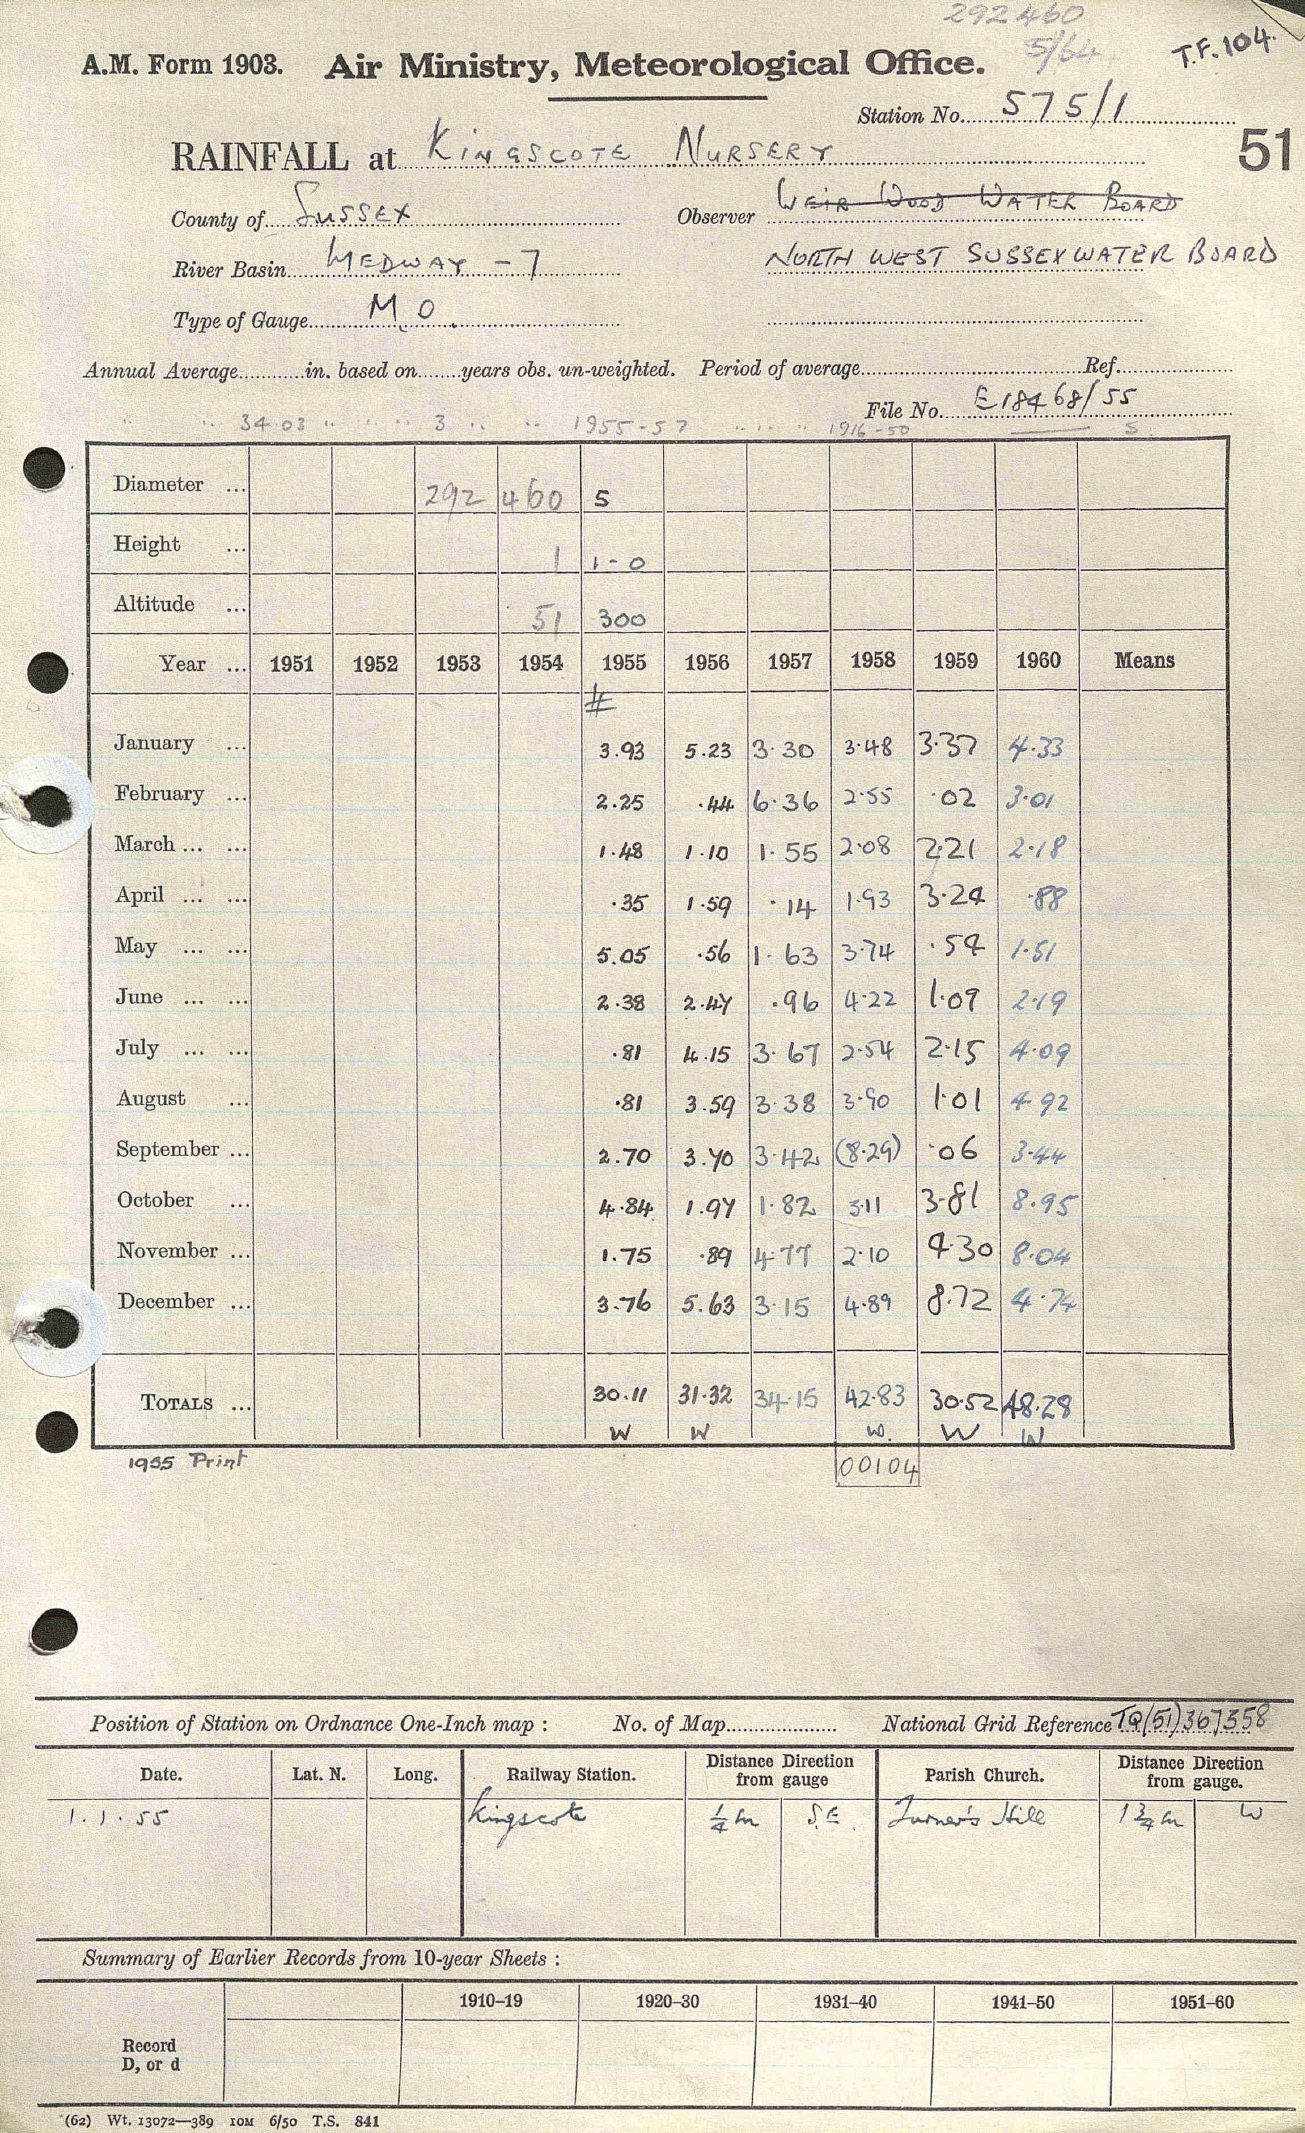 292460
5/64
T.F. 104.
A.M. Form 1903. Air Ministry, Meteorological Office.
Station No. 575/1
51
RAINFALL at KINGSCOTE NURSERY
County of SUSSEX Observer WEIR WOOD WATER BOARD
River Basin MEDWAY - 7 NORTH WEST SUSSEX WATER BOARD
Type of Gauge M.O.
Annual Average in. based on years obs. un-weighted. Period of average Ref.
File No. E18468/55
" " 34.03 " " " " 3 " " 1955-57 " " " 1916-50 S
Diameter ... 292 460 5
Height ... 1 1-0
Altitude ... 51 300
Year ... 1951 1952 1953 1954 1955 1956 1957 1958 1959 1960 Means
#
January ... 3.93 5.23 3.30 3.48 3.37 4.33
February ... 2.25 .44 6.36 2.55 .02 3.01
March ... ... 1.48 1.10 1.55 2.08 2.21 2.18
April ... ... .35 1.59 .14 1.93 3.24 .88
May ... ... 5.05 .56 1.63 3.74 .54 1.51
June ... ... 2.38 2.47 .96 4.22 1.09 2.19
July ... ... .81 4.15 3.67 2.54 2.15 4.09
August ... .81 3.59 3.38 3.90 1.01 4.92
September ... 2.70 3.70 3.42 (8.29) .06 3.44
October ... 4.84 1.97 1.82 3.11 3.81 8.95
November ... 1.75 .89 4.77 2.10 4.30 8.04
December ... 3.76 5.63 3.15 4.89 8.72 4.74
TOTALS ... 30.11 31.32 34.15 42.83 30.52 48.28
W W W. W W
1955 Print 00104
Position of Station on Ordnance One-Inch map : No. of Map National Grid Reference TQ(51)367358
Date. Lat. N. Long. Railway Station. Distance Direction from gauge Parish Church. Distance Direction from gauge.
1.1.55 Kingscote 1/4 m S.E. Turner's Hill 1 3/4 m W
Summary of Earlier Records from 10-year Sheets :
1910–19 1920–30 1931–40 1941–50 1951–60
Record
D, or d
(62) Wt. 13072—389 10M 6/50 T.S. 841